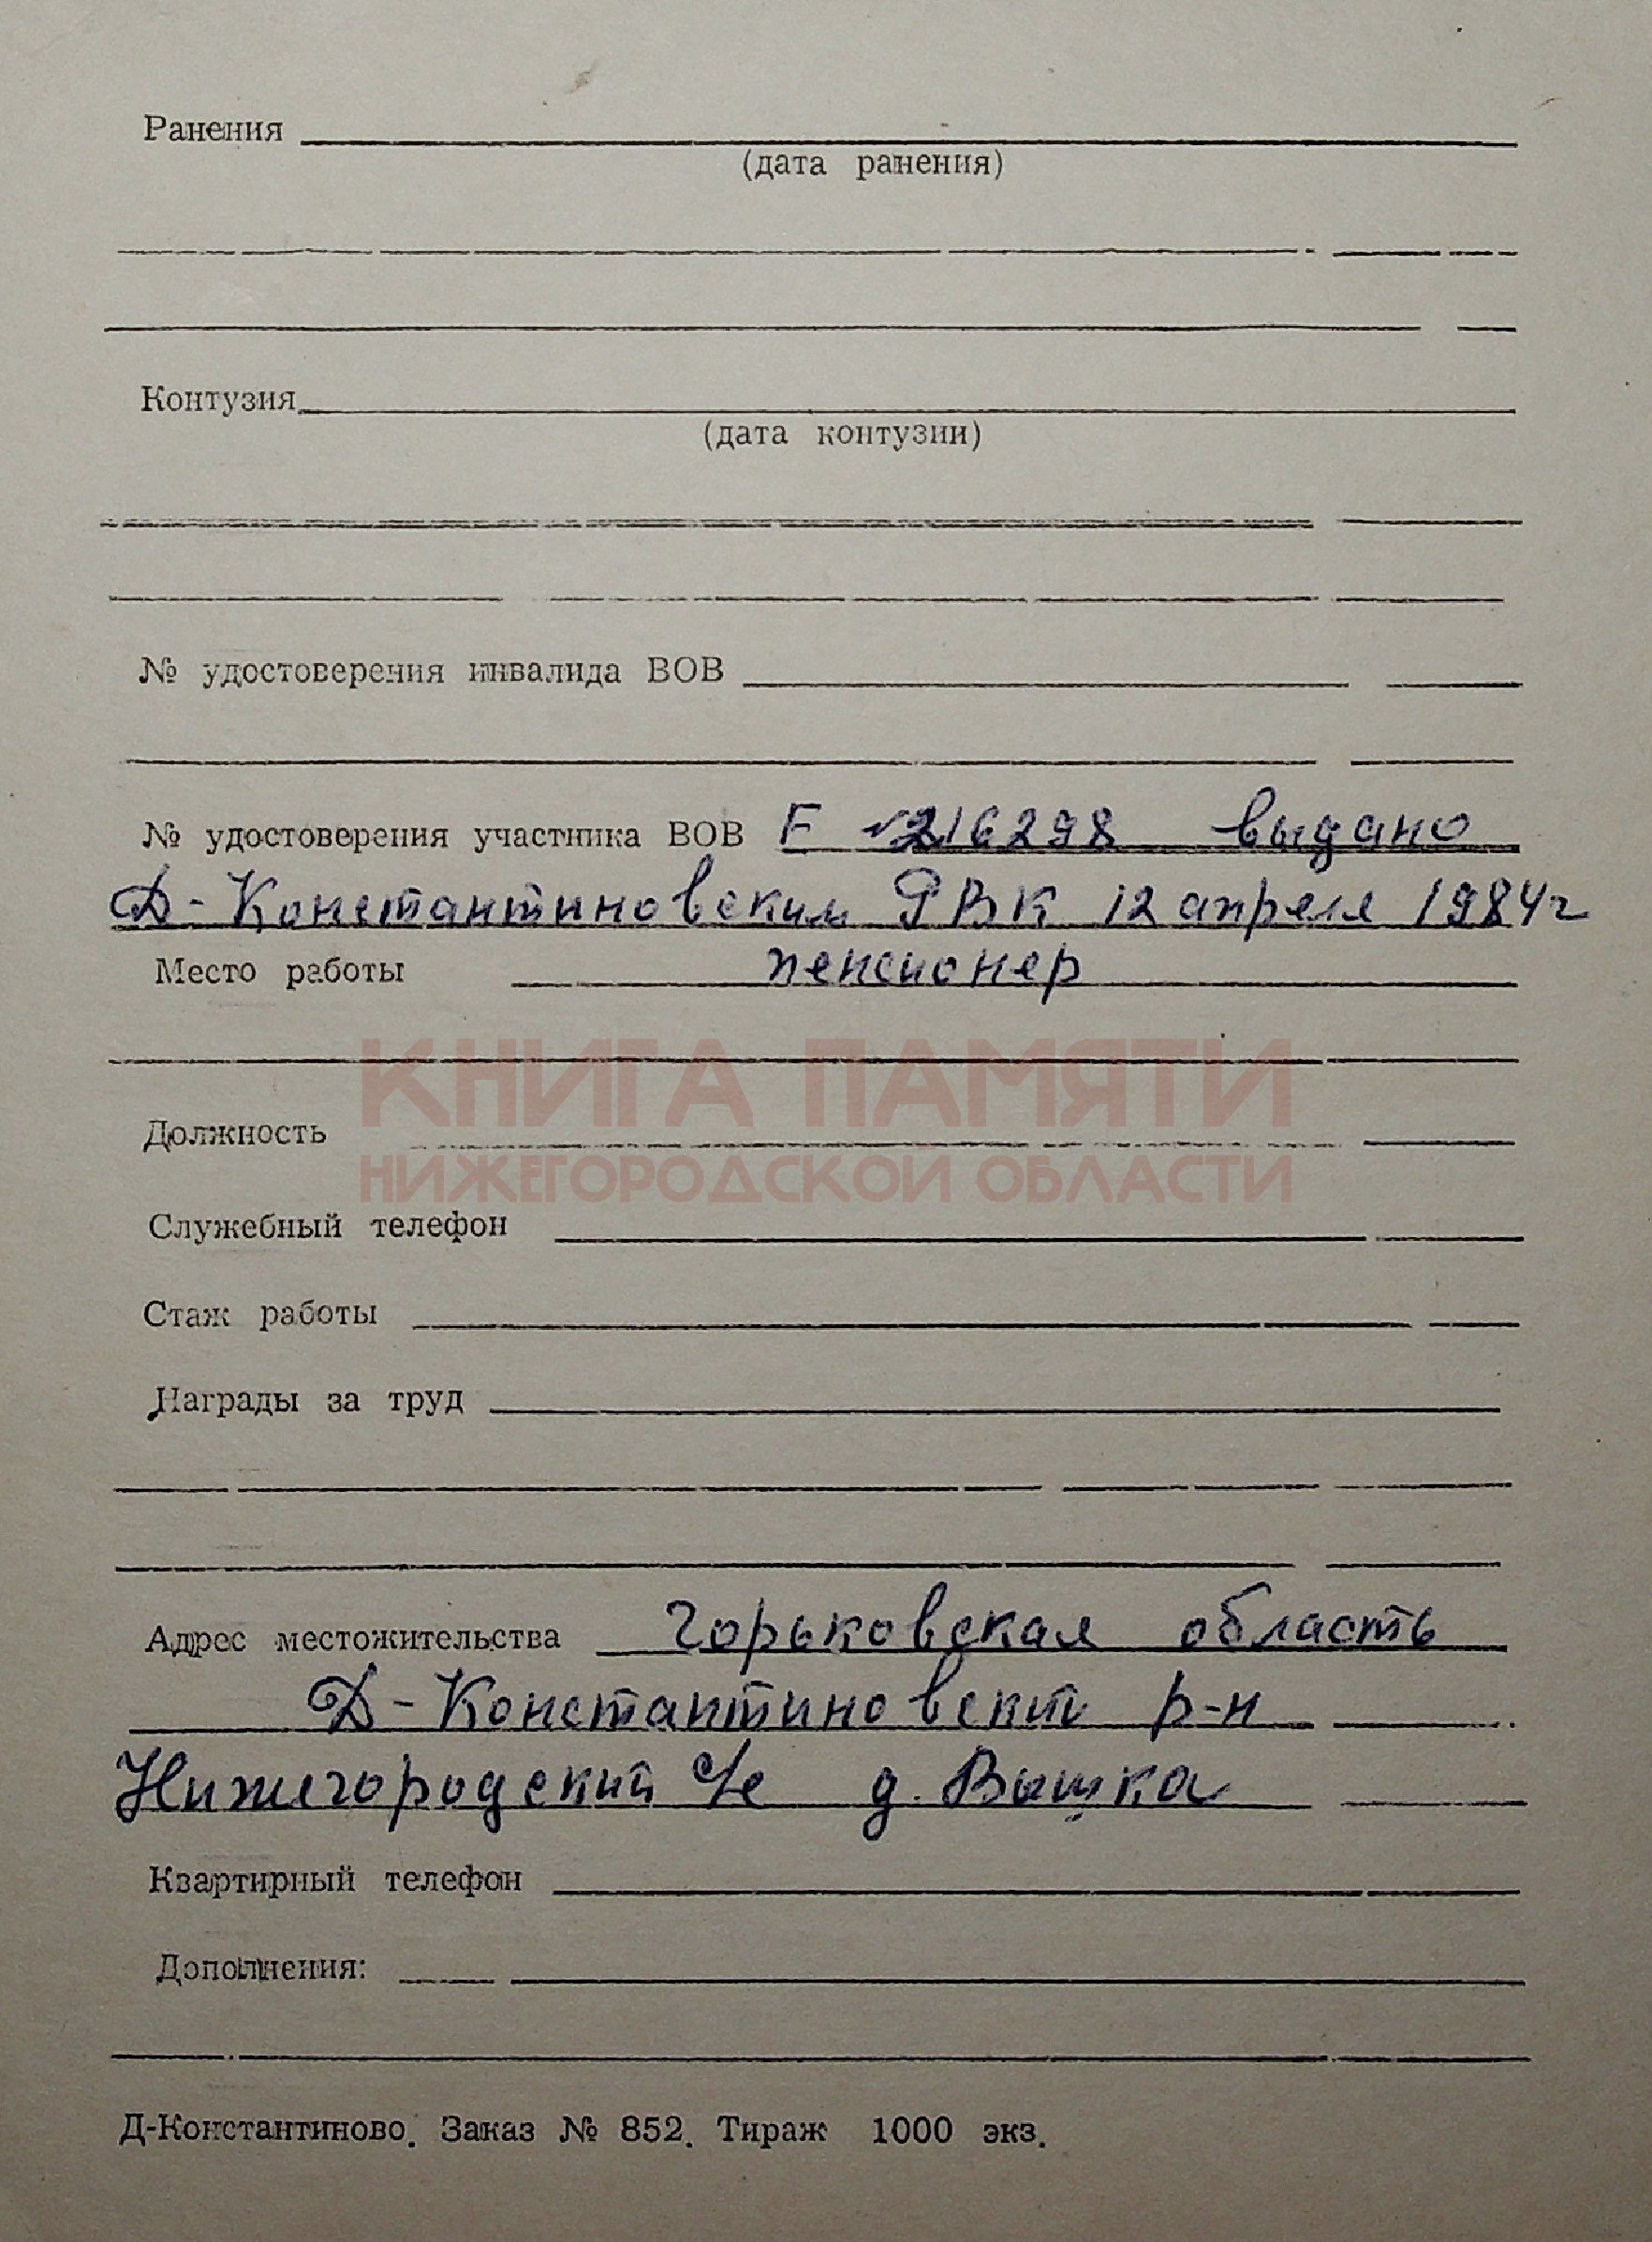 Ранения
(дата ранения)
Контузия
(дата контузии)
№ удостоверения инвалида ВОВ
№ удостоверения участника ВОВ Е №216298 выдано
Д-Константиновским РВК 12 апреля 1984г
Место работы пенсионер
КНИГА ПАМЯТИ
Должность
НИЖЕГОРОДСКОЙ ОБЛАСТИ
Служебный телефон
Стаж работы
Награды за труд
Адрес местожительства Горьковская область
Д-Константиновский р-н
Нижегородский с/с д. Вышка
Квартирный телефон
Дополнения:
Д-Константиново. Заказ № 852. Тираж 1000 экз.